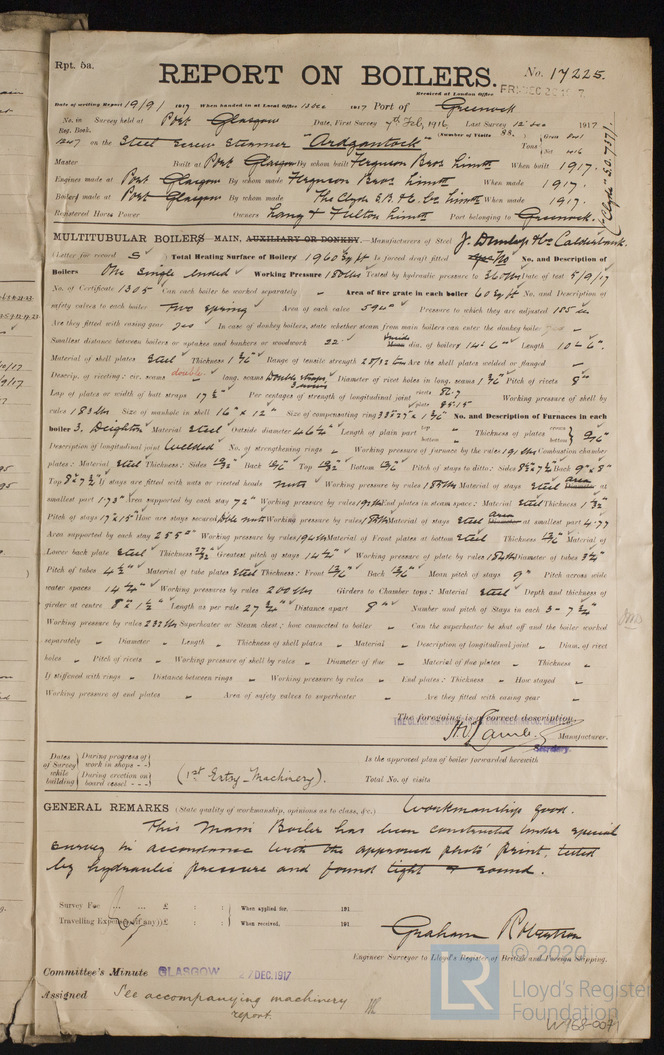 Rpt. 5a.
REPORT ON BOILERS.
No. 17225.
Received at London Office FRI DEC 28 1917
Date of writing Report 19/9/ 1917 When handed in at Local Office 13 Dec 1917 Port of Greenock
No. in Survey held at Port Glasgow Date, First Survey 7th Feb, 1916, Last Survey 12 Dec 1917
Reg. Book. (Number of Visits 88.) Gross
on the Steel Screw Steamer "Ardgantock" Tons Net
Master Built at Port Glasgow By whom built Ferguson Bros Limtd When built 1917.
Engines made at Port Glasgow By whom made Ferguson Bros Limtd When made 1917.
Boilers made at Port Glasgow By whom made The Clyde S.B. & Co Limtd When made 1917.
Registered Horse Power Owners Lang & Fulton Limtd Port belonging to Greenock.
(Clyde S.O. 737).
MULTITUBULAR BOILERS MAIN, AUXILIARY OR DONKEY.—Manufacturers of Steel J. Dunlop & Co Calderbank.
(Letter for record S) Total Heating Surface of Boilers 1960 Sq ft Is forced draft fitted No No. and Description of
Boilers One Single Ended Working Pressure 180 lbs Tested by hydraulic pressure to 360 lbs Date of test 5/9/17
No. of Certificate 1305 Can each boiler be worked separately Area of fire grate in each boiler 60 sq ft No. and Description of
safety valves to each boiler Two Spring Area of each valve 5.94" Pressure to which they are adjusted 185 lbs
Are they fitted with easing gear yes In case of donkey boilers, state whether steam from main boilers can enter the donkey boiler
Smallest distance between boilers or uptakes and bunkers or woodwork 22" Inside dia. of boilers 14' 6" Length 10' 6".
Material of shell plates Steel Thickness 1 3/16" Range of tensile strength 28/32 tons Are the shell plates welded or flanged
Descrip. of riveting: cir. seams double long. seams Double straps Diameter of rivet holes in long. seams 1 3/16" Pitch of rivets 8"
Lap of plates or width of butt straps 17 1/2" Per centages of strength of longitudinal joint rivets 86.7 plate 85.15 Working pressure of shell by
rules 183 lbs Size of manhole in shell 16" x 12" Size of compensating ring 33"x27"x 1 3/16" No. and Description of Furnaces in each
boiler 3. Deighton Material Steel Outside diameter 46 3/4" Length of plain part top bottom Thickness of plates crown bottom 9/16"
Description of longitudinal joint Welded No. of strengthening rings Working pressure of furnace by the rules 191 lbs Combustion chamber
plates: Material Steel Thickness: Sides Back Top Bottom Pitch of stays to ditto: Sides 8 1/2"x 7 1/2" Back 9" x 8"
Top 8"x 7 1/2" If stays are fitted with nuts or riveted heads nuts Working pressure by rules Material of stays Steel area at
smallest part 1.73" Area supported by each stay 72" Working pressure by rules End plates in steam space: Material Steel Thickness
Pitch of stays 17"x15" How are stays secured Dble nuts Working pressure by rules Material of stays Steel area at smallest part 4.77
Area supported by each stay 255" Working pressure by rules 194 lbs Material of Front plates at bottom Steel Thickness Material of
Lower back plate Steel Thickness Greatest pitch of stays 14 1/2" Working pressure of plate by rules 184 lbs Diameter of tubes 3 1/4"
Pitch of tubes 4 1/2" Material of tube plates Steel Thickness: Front Back Mean pitch of stays 9" Pitch across wide
water spaces 14 1/4" Working pressures by rules 200 lbs Girders to Chamber tops: Material Steel Depth and thickness of
girder at centre 8" 1 1/2" Length as per rule 27 3/4" Distance apart 8" Number and pitch of Stays in each 3 - 7 1/2"
Working pressure by rules 232 lbs Superheater or Steam chest; how connected to boiler Can the superheater be shut off and the boiler worked
separately Diameter Length Thickness of shell plates Material Description of longitudinal joint Diam. of rivet
holes Pitch of rivets Working pressure of shell by rules Diameter of flue Material of flue plates Thickness
If stiffened with rings Distance between rings Working pressure by rules End plates: Thickness How stayed
Working pressure of end plates Area of safety valves to superheater Are they fitted with easing gear
The foregoing is a correct description,
Manufacturer.
Secretary.
Dates of Survey while building During progress of work in shops - -
During erection on board vessel - - -
(1st Entry - Machinery).
Is the approved plan of boiler forwarded herewith
Total No. of visits
GENERAL REMARKS (State quality of workmanship, opinions as to class, &c.) Workmanship good.
This Main Boiler has been constructed under special
survey in accordance with the approved photo print, tested
by hydraulic pressure and found tight & sound.
Survey Fee ... ... £ : : When applied for, 191
Travelling Expenses (if any) £ : : When received, 191
Graham Robertson
Engineer Surveyor to Lloyd's Register of British and Foreign Shipping.
Committee's Minute GLASGOW 27 DEC. 1917
Assigned See accompanying machinery
report.
© 2020
LR
Lloyd's Register
Foundation
W968-0071